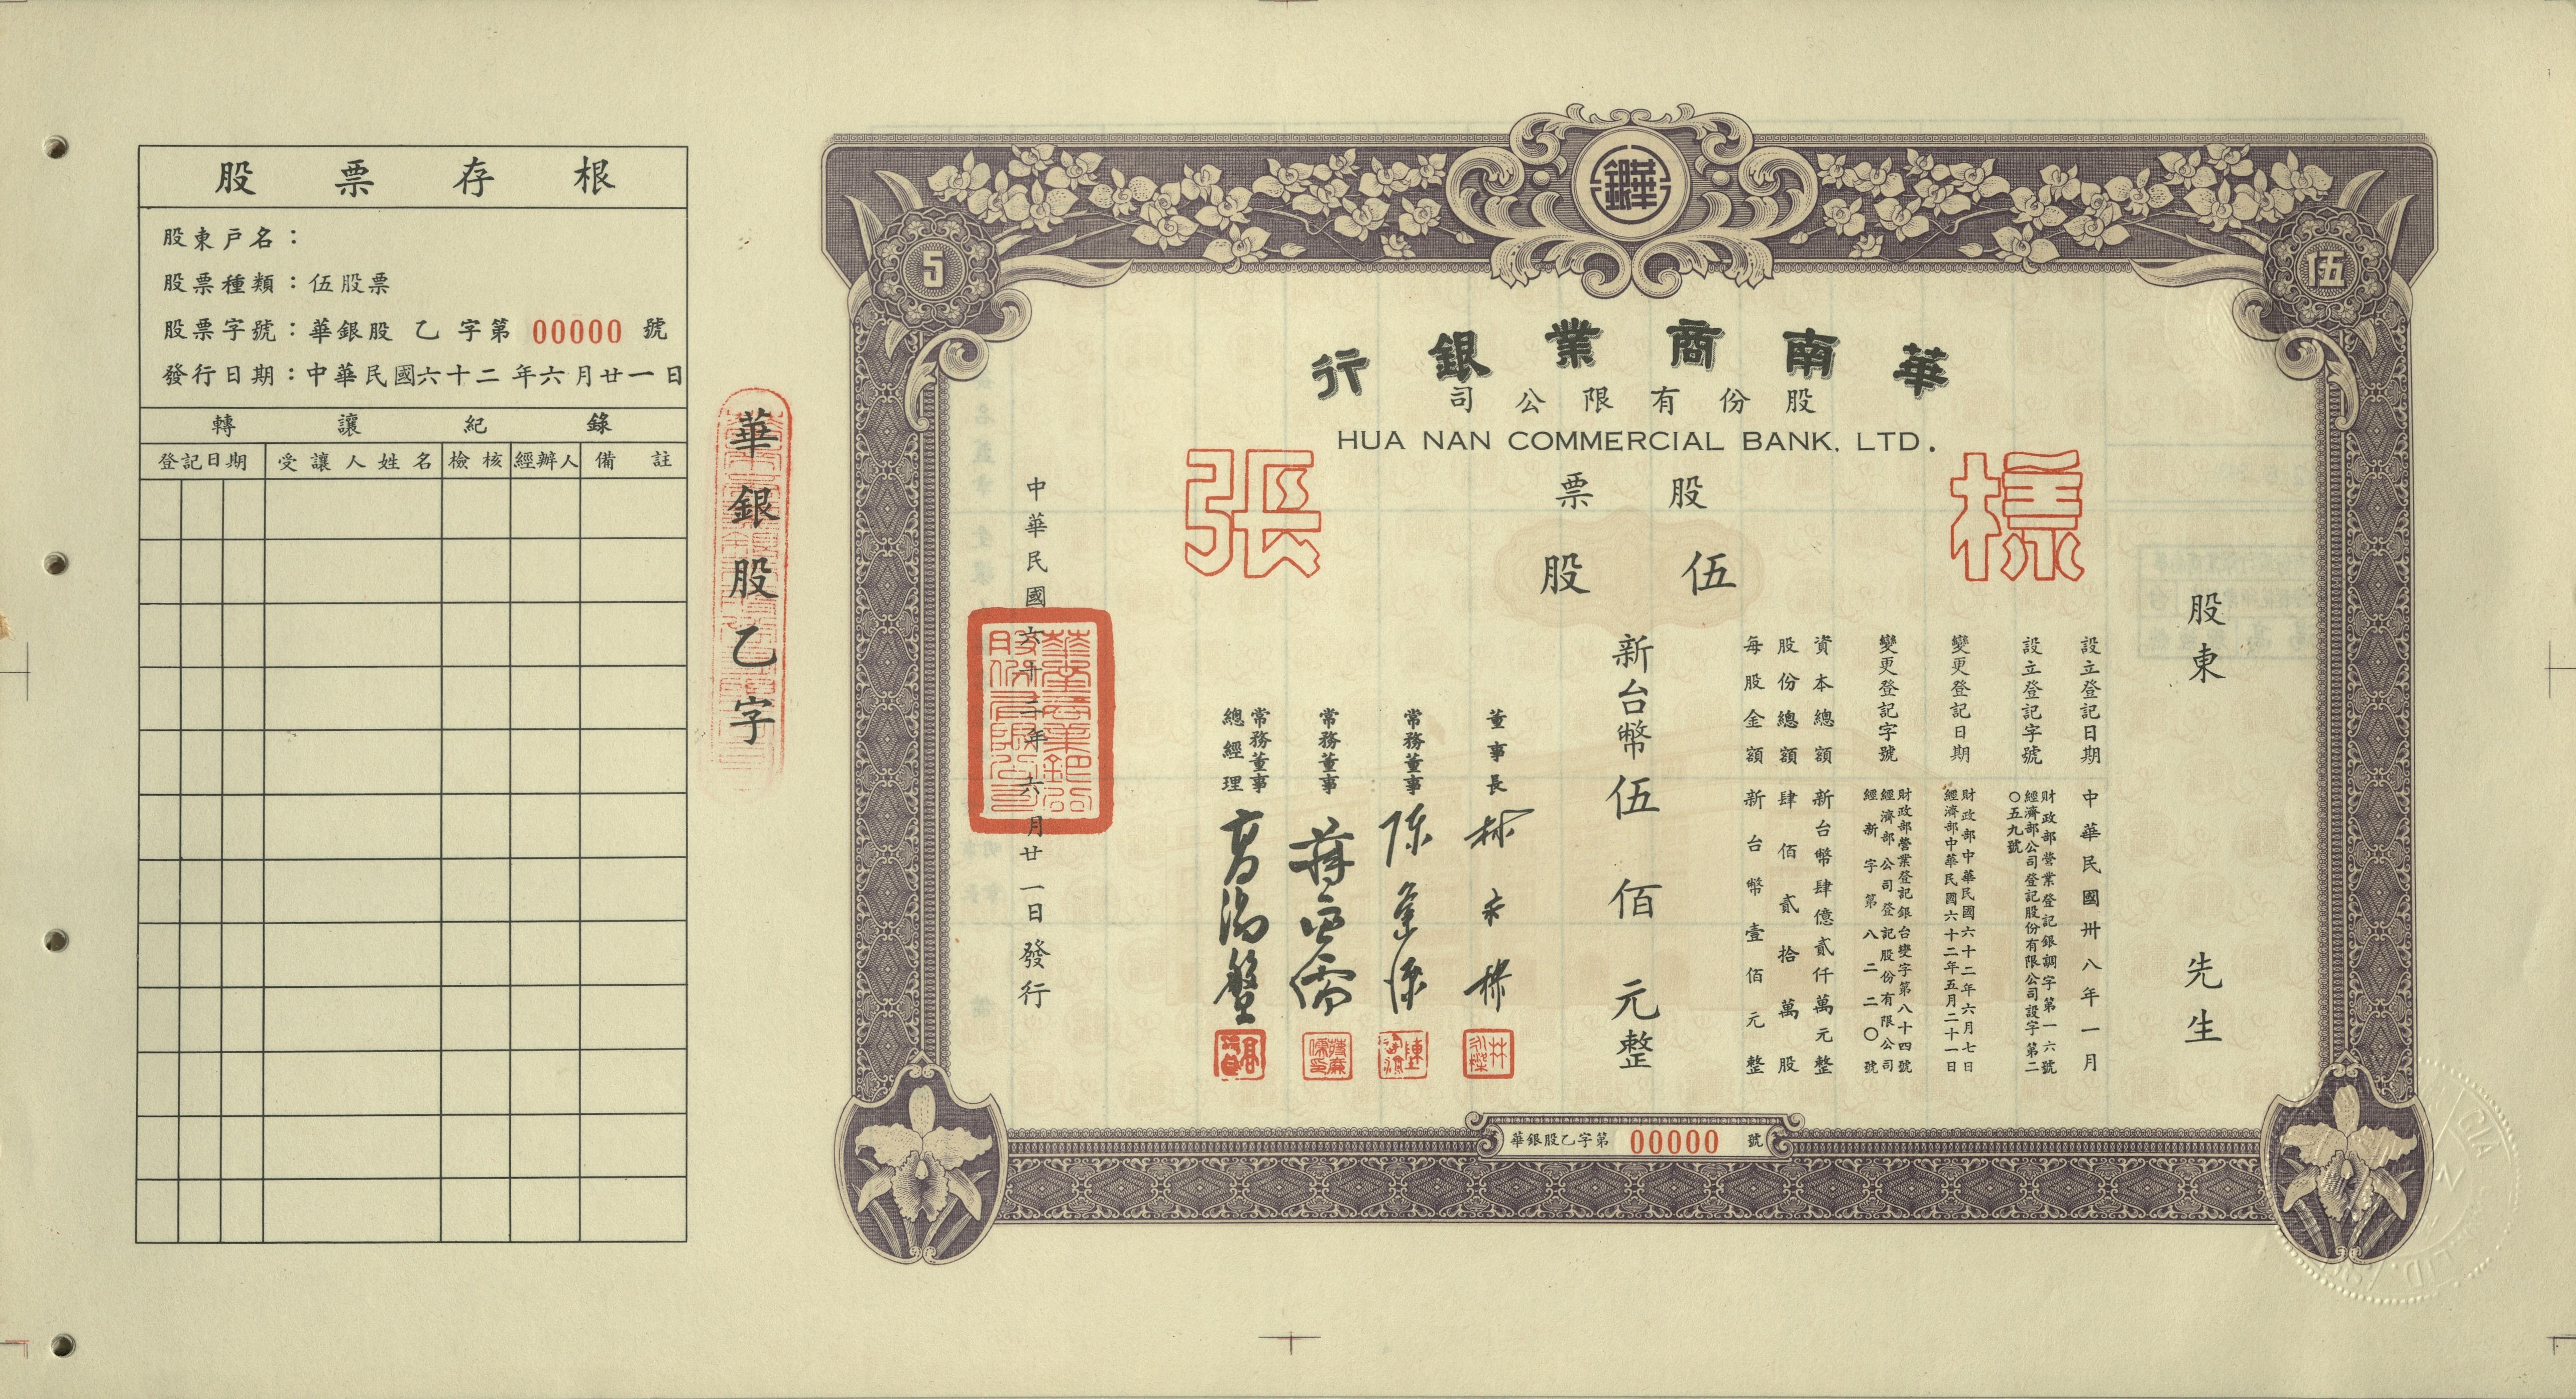 股票存根
股東戶名：
股票種類：伍股票
股票字號：華銀股 乙 字第 00000 號
發行日期：中華民國六十二年六月廿一日
轉讓紀錄
登記日期 受讓人姓名 檢核 經辦人 備註
華銀股乙字
5
伍
華銀
華南商業銀行
股份有限公司
HUA NAN COMMERCIAL BANK, LTD.
樣張
股票
伍股
股東 先生
設立登記日期 中華民國卅八年一月
設立登記字號 財政部營業登記銀調字第一六號
經濟部公司登記股份有限公司設字第二
〇五九號
變更登記日期 財政部中華民國六十二年六月七日
經濟部中華民國六十二年五月二十一日
變更登記字號 財政部營業登記銀台變字第八十四號
經濟部公司登記股份有限公司
經新字第八二二〇號
資本總額 新台幣肆億貳仟萬元整
股份總額 肆佰貳拾萬股
每股金額 新台幣壹佰元整
新台幣伍佰元整
董事長
常務董事
常務董事
常務董事
總經理
中華民國六十二年六月廿一日發行
華銀股乙字第 00000 號